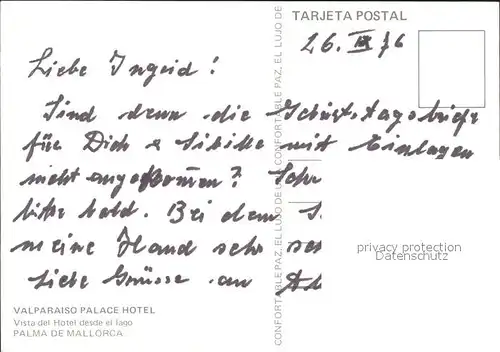 TARJETA POSTAL
26. IX 76
Liebe Ingrid!
Sind denn die Geburtstagsbriefe
für Dich & Sibille mit Einlagen
nicht angekommen? Schr
bitte bald. Bei dem S.
meine Hand sehr
Liebe Grüsse an
EL LUJO DE LA CONFORTABLE PAZ. EL LUJO DE LA CONFORTABLE PAZ. EL LUJO DE
privacy protection
Datenschutz
VALPARAISO PALACE HOTEL
Vista del Hotel desde el lago
PALMA DE MALLORCA